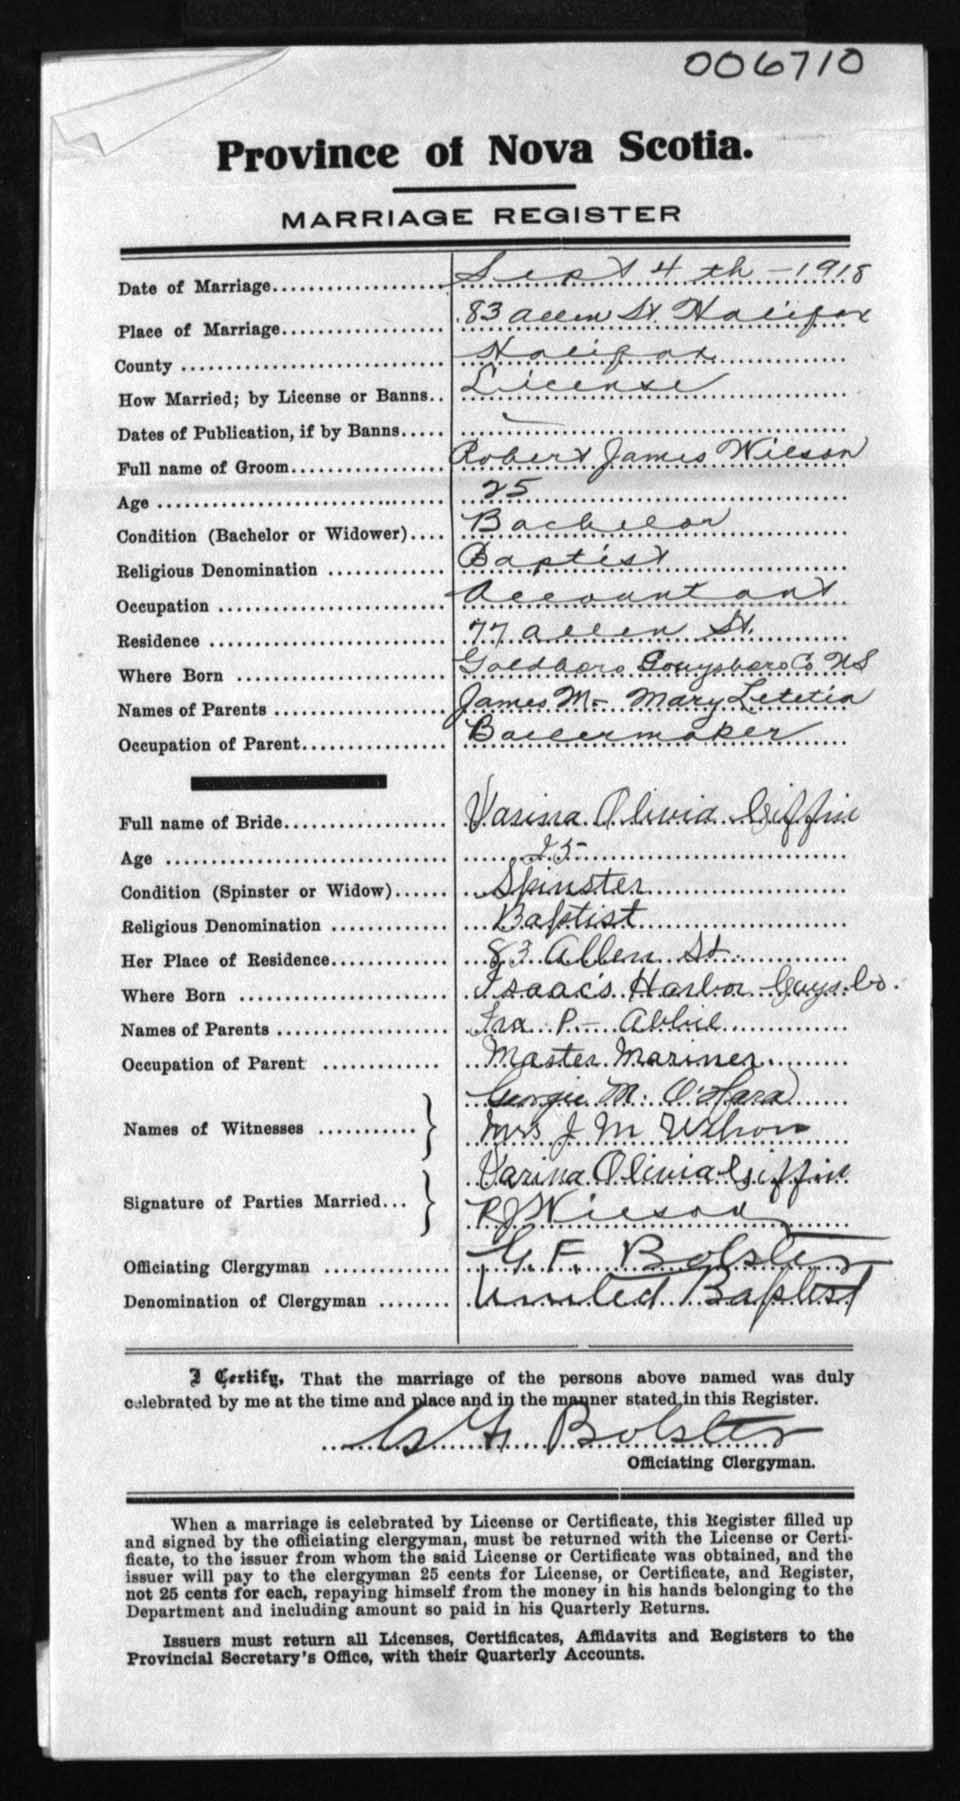 006710
Province of Nova Scotia.
MARRIAGE REGISTER
Date of Marriage Sept 4th - 1918
Place of Marriage 83 Allen St. Halifax
County Halifax
How Married; by License or Banns License
Dates of Publication, if by Banns —
Full name of Groom Robert James Wilson
Age 25
Condition (Bachelor or Widower) Bachelor
Religious Denomination Baptist
Occupation Accountant
Residence 77 Allen St.
Where Born Goldboro Guysboro Co NS
Names of Parents James M. - Mary Letetia
Occupation of Parent Boilermaker
Full name of Bride Varina Olivia Giffin
Age 25
Condition (Spinster or Widow) Spinster
Religious Denomination Baptist
Her Place of Residence 83 Allen St.
Where Born Isaac's Harbor Guys. Co.
Names of Parents Ira P - Abbie
Occupation of Parent Master Mariner
Names of Witnesses } Georgie M. O'Hara
Mrs J M Wilson
Signature of Parties Married } Varina Olivia Giffin
RJ Wilson
Officiating Clergyman G. F. Bolster
Denomination of Clergyman United Baptist
I Certify, That the marriage of the persons above named was duly
celebrated by me at the time and place and in the manner stated in this Register.
G. F. Bolster
Officiating Clergyman.
When a marriage is celebrated by License or Certificate, this Register filled up
and signed by the officiating clergyman, must be returned with the License or Certi-
ficate, to the issuer from whom the said License or Certificate was obtained, and the
issuer will pay to the clergyman 25 cents for License, or Certificate, and Register,
not 25 cents for each, repaying himself from the money in his hands belonging to the
Department and including amount so paid in his Quarterly Returns.
Issuers must return all Licenses, Certificates, Affidavits and Registers to the
Provincial Secretary's Office, with their Quarterly Accounts.